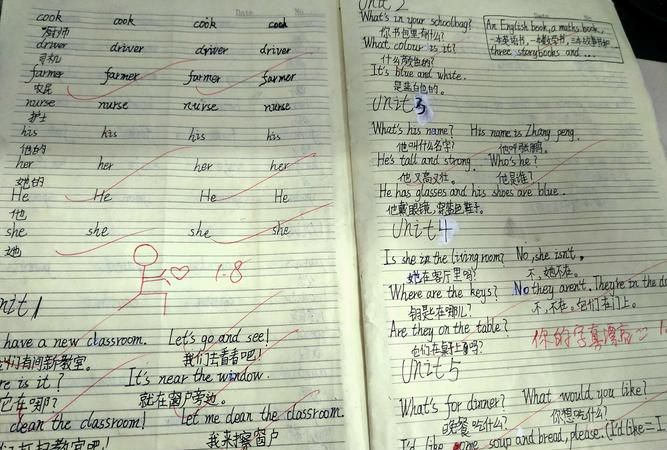 cook cook cook cook
厨师
driver driver driver driver
司机
farmer farmer farmer farmer
农民
nurse nurse nurse nurse
护士
his his his his
他的
her her her her
她的
He He He He
他
she she she she
她
1-8
Unit 1
have a new classroom. Let's go and see!
们有间新教室。 我们去看看吧!
re is it? It's near the window.
它在哪? 就在窗户旁边。
clean the classroom! Let me clean the classroom.
打扫教室吧! 我来擦窗户
Unit 2
What's in your schoolbag?
你书包里有什么?
An English book, a maths book,
一本英语书,一本数学书,三本故事书和
three storybooks and ...
What colour is it?
什么颜色的?
It's blue and white.
是蓝白色的。
Unit 3
What's his name? His name is Zhang peng.
他叫什么名字? 他叫张鹏。
He's tall and strong. Who's he?
他又高又壮。 他是谁?
He has glasses and his shoes are blue.
他戴眼镜,穿蓝色鞋子。
Unit 4
Is she in the living room? No, she isn't.
她在客厅里吗? 不,她不在。
Where are the keys? No they aren't. They're in the do
钥匙在哪儿? 不,不在。它们在门上。
Are they on the table?
它们在桌子上吗?
你的字真漂亮
Unit 5
What's for dinner? What would you like?
晚餐吃什么? 你想吃什么?
I'd like some soup and bread, please. (I'd like = I